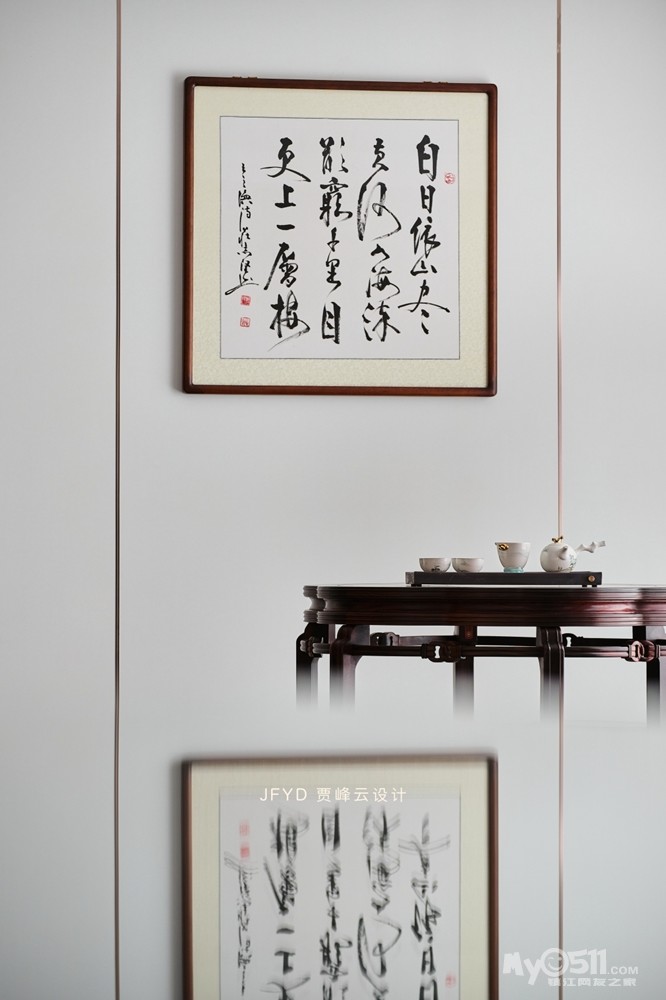 白日依山尽
黄河入海流
欲穷千里目
更上一层楼
JFYD 贾峰云设计
My0511.COM
镇江网友之家